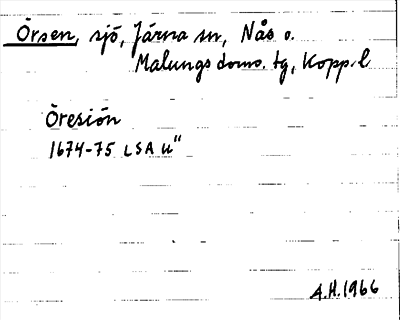 Örsen, sjö, Järna sn, Nås o.
Malungs doms. tg, Kopp. l
Öresiön
1674-75 LSA u"
A.H. 1966